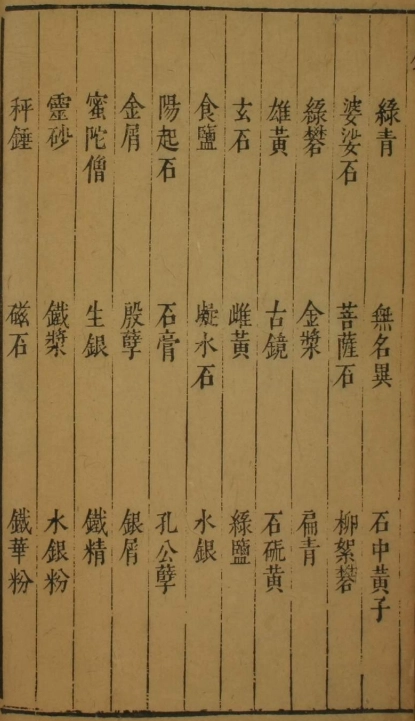 綠青 無名異 石中黃子
婆娑石 菩薩石 柳絮礬
綠礬 金漿 扁青
雄黃 古鏡 石硫黃
玄石 雌黃 綠鹽
食鹽 凝水石 水銀
陽起石 石膏 孔公孽
金屑 殷孽 銀屑
蜜陀僧 生銀 鐵精
靈砂 鐵漿 水銀粉
秤錘 磁石 鐵華粉